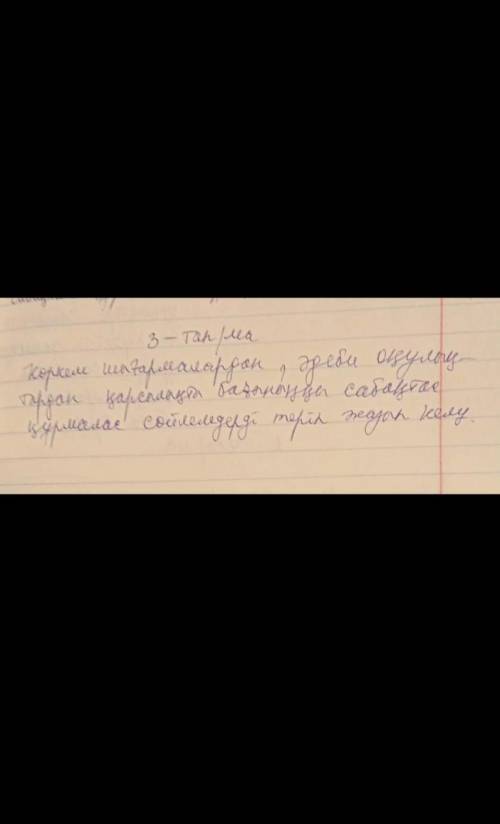 3 - тап/ма
Көркем шығармалардан, әдеби оқулық-
тардан қарсылықты бағыныңқы сабақтас
құрмалас сөйлемдерді теріп жазып келу.